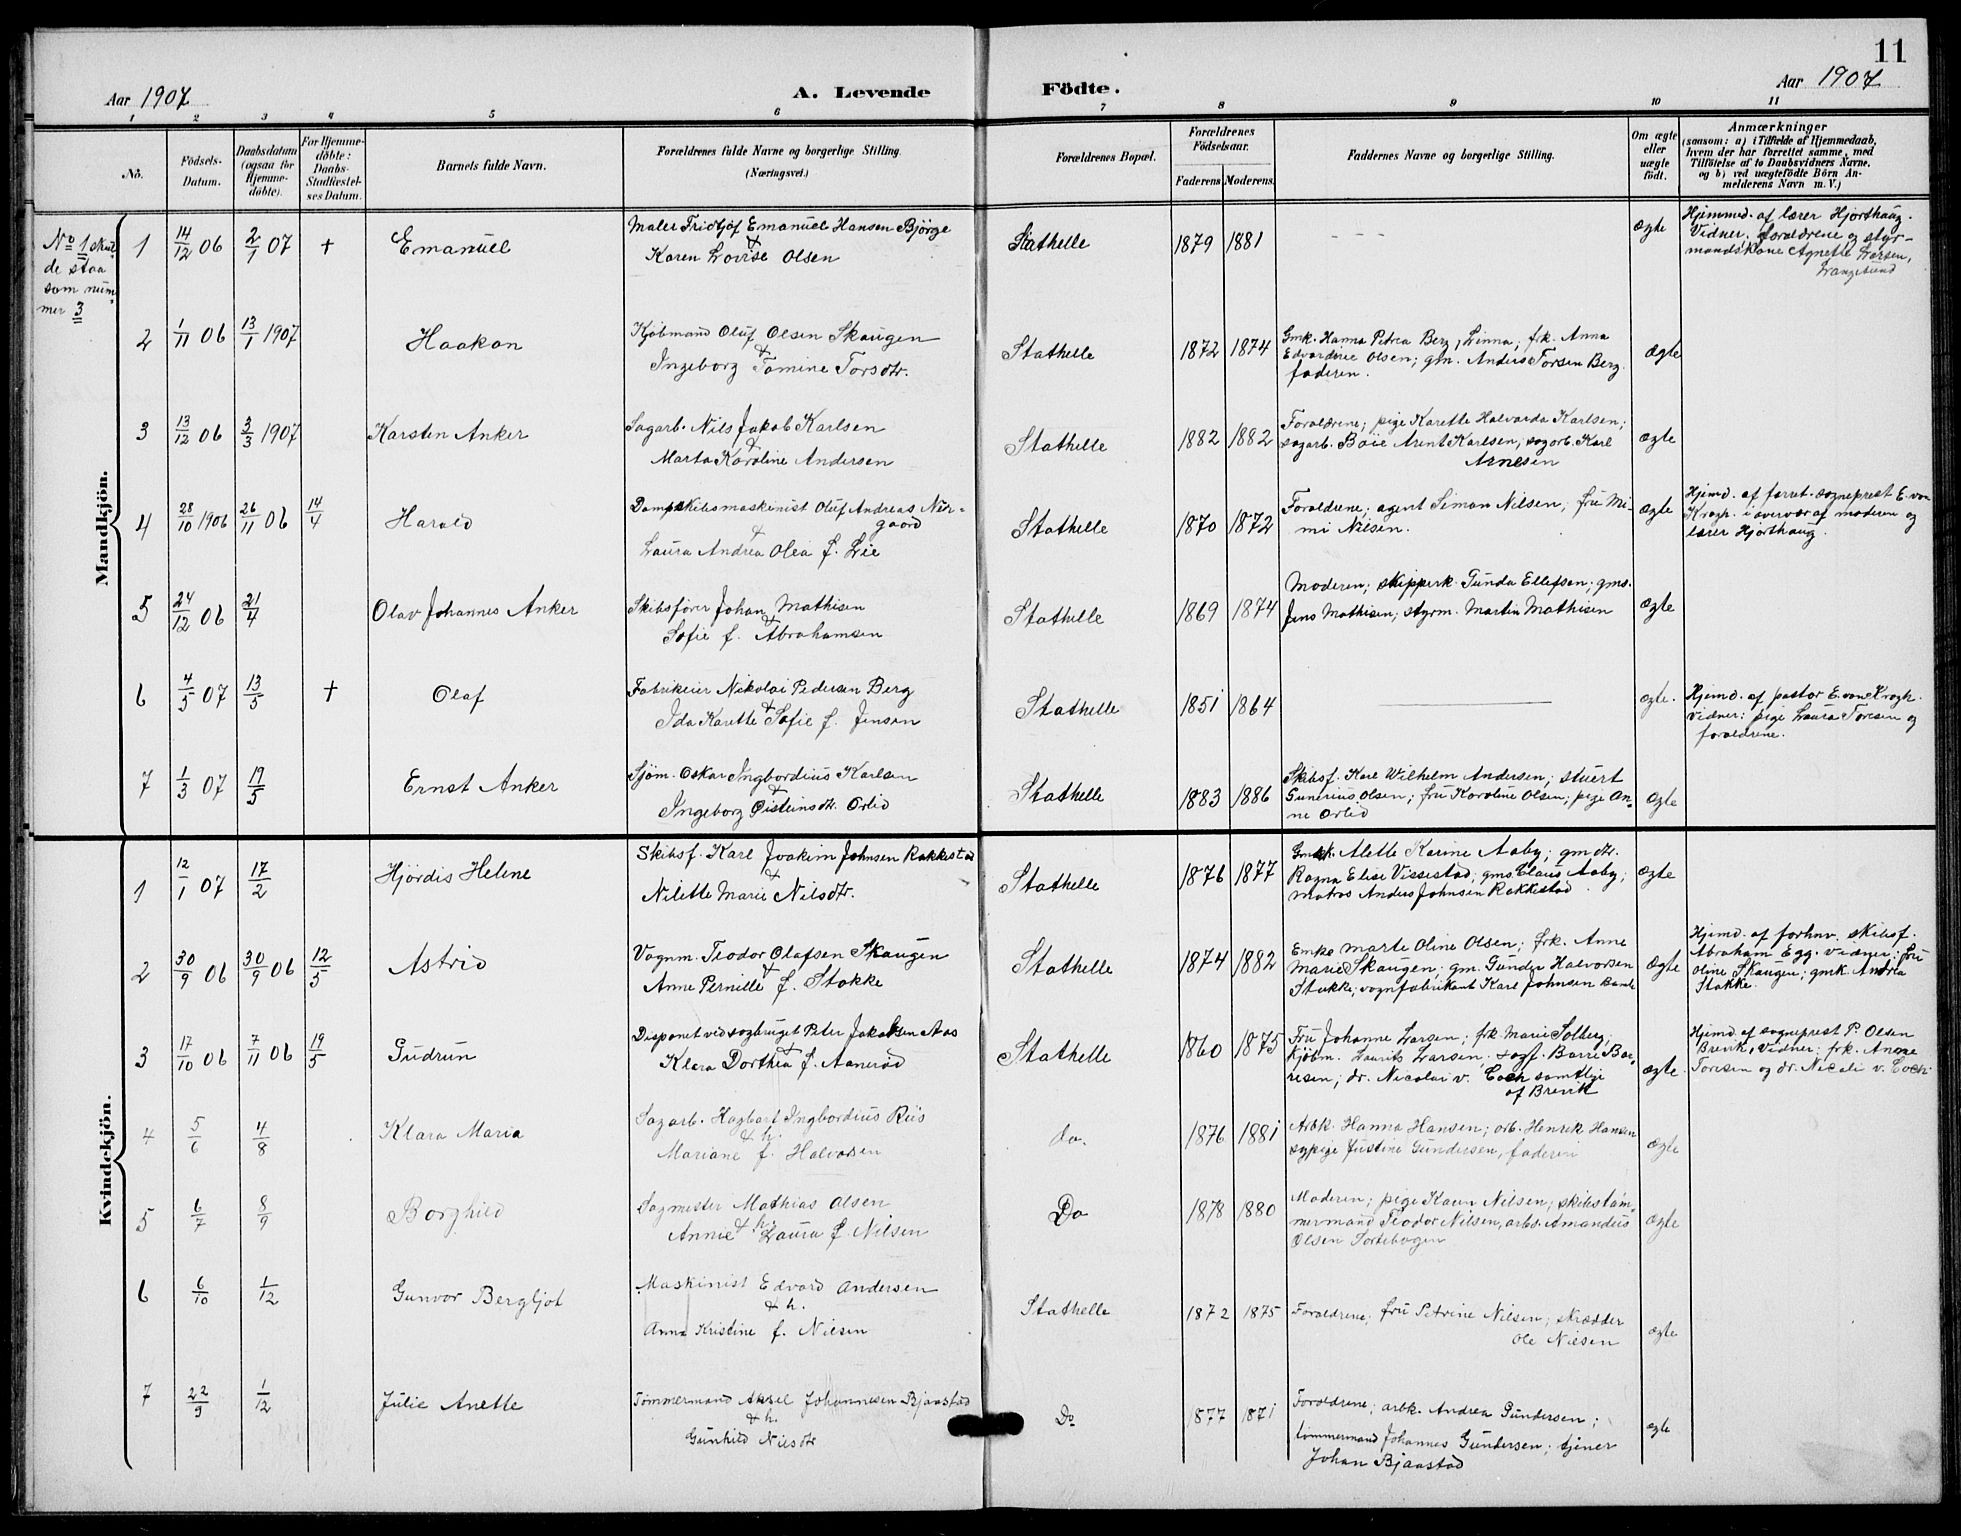 11
Aar 1907
A. Levende Födte.
Aar 1907
1 2 3 4 5 6 7 8 9 10 11
No.
Födsels-
Datum.
Daabsdatum
(ogsaa for
Hjemme-
döbte).
For Hjemme-
döbte:
Daabs-
Stadfæstel-
ses Datum.
Barnets fulde Navn.
Forældrenes fulde Navne og borgerlige Stilling.
(Næringsvei.)
Forældrenes Bopæl.
Forældrenes
Födselsaar.
Faderens. Moderens.
Faddernes Navne og borgerlige Stilling.
Om ægte
eller
uægte
födt.
Anmærkninger
(saasom: a) i Tilfælde af Hjemmedaab,
hvem der har forrettet samme, med
Tilföielse af to Daabsvidners Navne,
og b) ved uægtefödte Börn An-
melderens Navn m. V.)
Mandkjön.
No 1 skul-
de staa
som num-
mer 3
1 14/12 06 2/1 07 + Emanuel
Maler Fridtjof Emanuel Hansen Bjørge
&
Karen Lovise Olsen
Stathelle 1879 1881 - - - ægte
Hjemmed. af lærer Hjorthaug.
Vidner, forældrene og styr-
mandskone Agnette Larsen,
Langesund
2 1/11 06 13/1 1907 Haakon
Kjøbmand Oluf Olsen Skaugen
&
Ingeborg Tomine Torsdtr.
Stathelle 1872 1874
Gmk. Hanna Petrea Berg, Linna; frk. Anna
Edvardine Olsen; gm. Anders Torsen Berg
faderen.
ægte
3 13/12 06 3/3 1907 Karsten Anker
Sagarb. Nils Jakob Karlsen
&
Marta Karoline Andersen
Stathelle 1882 1882
Forældrene; pige Karette Halvarda Karlsen;
sagarb. Böie Arent Karlsen, sagarb. Karl
Arnesen
ægte
4 28/10 1906 26/11 06 14/4 Harald
Dampskibsmaskinist Oluf Andreas Ner-
gaard
&
Laura Andrea Olea f. Lie
Stathelle 1870 1872
Forældrene; agent Simon Nilsen, fru Mi-
mi Nilsen.
ægte
Hjemd. af forret. sogneprest E. von
Krogh. i overvær af moderen og
lærer Hjorthaug.
5 24/12 06 21/4 Olav Johannes Anker
Skibsfører Johan Mathisen
&
Sofie f. Abrahamsen
Stathelle 1869 1874
Moderen; skipperk. Gunda Ellefsen; gms.
Jens Mathisen; styrm. Martin Mathisen
ægte
6 4/5 07 13/5 + Olaf
Fabrikeier Nikolai Pedersen Berg
&
Ida Karette Sofie f. Jensen
Stathelle 1851 1864
ægte.
Hjemd. af pastor E. von Krogh.
Vidner: pige Laura Toresen og
forældrene.
7 1/3 07 19/5 Ernst Anker
Sjøm. Oskar Ingbordius Karlsen
&
Ingeborg Øisteinsdtr. Orlid
Stathelle 1883 1886
Skibsf. Karl Wilhelm Andersen; stuert
Gunerius Olsen; fru Karoline Olsen; pige An-
ne Orlid
ægte
Kvindekjön.
1 12/1 07 17/2 Hjördis Helene
Skibsf. Karl Joakim Johnsen Rakkestad
&
Nilette Marie Nilsdtr.
Stathelle 1876 1877
Gmk. Alette Karine Aaby; gmdtr.
Ragna Elise Vissestad; gms. Claus Aaby;
Matros Anders Johnsen Rakkestad
ægte
2 30/9 06 30/9 06 12/5 Astrid
Vognm. Teodor Olafsen Skaugen
&
Anne Pernille f. Stokke
Stathelle 1874 1882
Enke Marte Oline Olsen; frk. Anne
Marie Skaugen; gm. Gunder Halvorsen
Stokke; vognfabrikant Karl Johnsen Bamle
ægte
Hjemd. af forhnv. skibsf.
Abraham Egg. Vidner: fru
Oline Skaugen; gmk. Andrea
Stokke.
3 17/10 06 7/11 06 19/5 Gudrun
Disponet ved sagbruget Peter Jakobsen Aas
&
Klara Dorthea f. Aanerød
Stathelle 1860 1875
Fru Johanne Larsen; frk. Marie Solberg;
kjöbm. Laurits Larsen; sagf. Borre Bor-
resen; dr. Nicolai v. Coch samtlige
af Brevik
ægte
Hjemd. af sogneprest P. Olsen
Brevik, Vidner: frk. Anne
Toresen og dr. Nicolai v. Coch
4 5/6 4/8 Klara Maria
Sagarb. Hagbart Ingbordius Riis
& h.
Mariane f. Halvorsen
do. 1876 1881
Arbk. Hanna Hansen; arb. Henrik Hansen
sypige Justine Gundersen, faderen
ægte
5 6/7 8/9 Borghild
Sagmester Mathias Olsen
& h.
Annie Laura f. Nilsen
Do 1878 1880
Moderen; pige Karen Nilsen; skibstöm-
mermand Teodor Nilsen, arb. Amandus
Olsen Sortebogen
ægte
6 6/10 1/12 Gunvor Bergljot
Maskinist Edvard Andersen
& h.
Anna Kristine f. Nilsen
Stathelle 1872 1875
Forældrene; fru Petrine Nilsen; skrædder
Ole Nilsen
ægte
7 22/9 1/12 Julie Anette
Tømmermand Aksel Johannesen Bjaastad
& h.
Gunhild Nilsdtr
Do 1877 1871
Forældrene; arbk. Andrea Gundersen;
tømmermand Johannes Gundersen; tjener
Johan Bjaastad
ægte